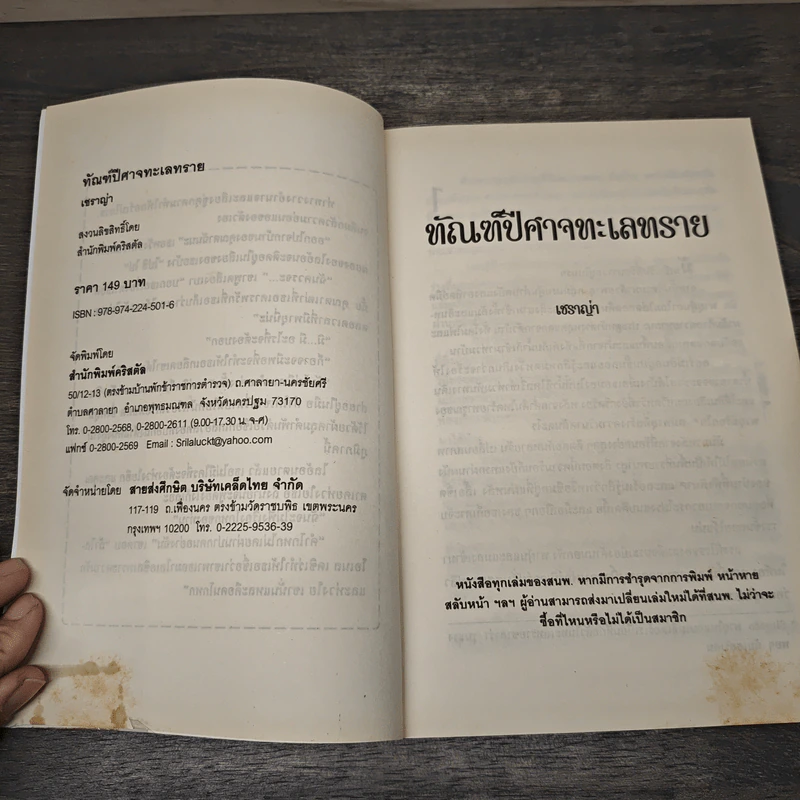 ทัณฑ์ปีศาจทะเลทราย
เชราญ่า
สงวนลิขสิทธิ์โดย
สำนักพิมพ์คริสตัล
ราคา 149 บาท
ISBN : 978-974-224-501-6
จัดพิมพ์โดย
สำนักพิมพ์คริสตัล
50/12-13 (ตรงข้ามบ้านพักข้าราชการตำรวจ) ถ.ศาลายา-นครชัยศรี
ตำบลศาลายา อำเภอพุทธมณฑล จังหวัดนครปฐม 73170
โทร. 0-2800-2568, 0-2800-2611 (9.00-17.30 น. จ-ศ)
แฟกซ์ 0-2800-2569 Email : Srilaluckt@yahoo.com
จัดจำหน่ายโดย สายส่งศึกษิต บริษัทเคล็ดไทย จำกัด
117-119 ถ.เฟื่องนคร ตรงข้ามวัดราชบพิธ เขตพระนคร
กรุงเทพฯ 10200 โทร. 0-2225-9536-39
ทัณฑ์ปีศาจทะเลทราย
เชราญ่า
หนังสือทุกเล่มของสนพ. หากมีการชำรุดจากการพิมพ์ หน้าหาย
สลับหน้า ฯลฯ ผู้อ่านสามารถส่งมาเปลี่ยนเล่มใหม่ได้ที่สนพ. ไม่ว่าจะ
ซื้อที่ไหนหรือไม่ได้เป็นสมาชิก